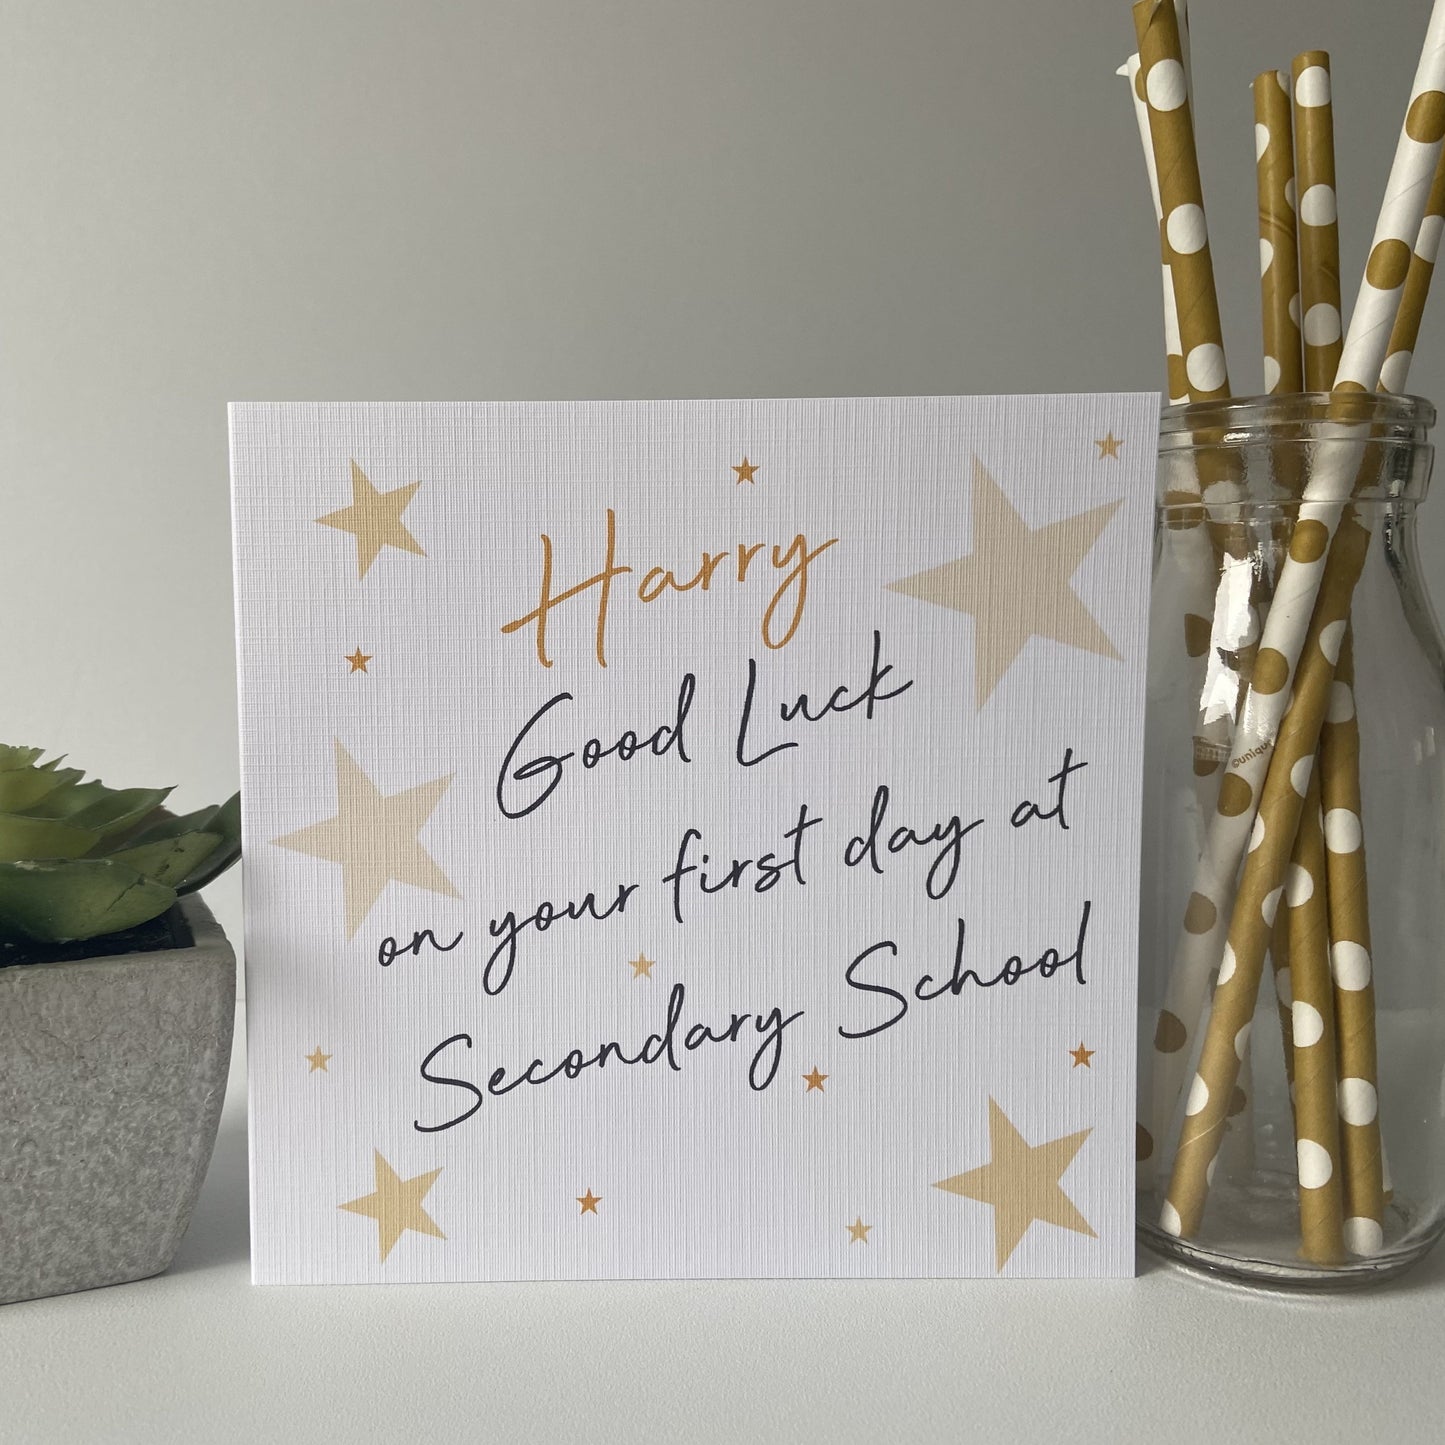 Harry
Good Luck
on your first day at
Secondary School
©unique